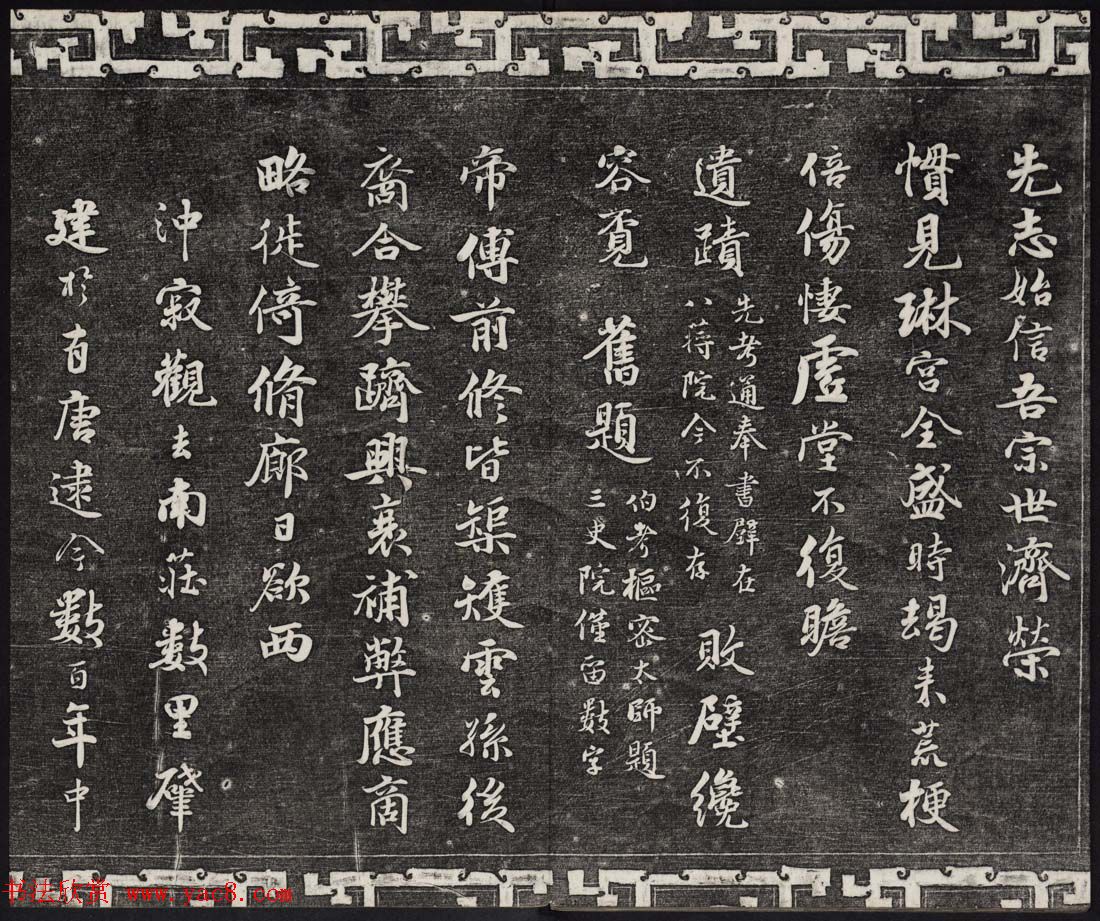 先志始信吾宗世濟榮
慣見琳宮全盛時朅来荒梗
倍傷悽虛堂不復瞻
遺蹟先考通奉書壁在
八蒋院今不復存敗壁纔
容覔舊題伯考樞密太師題
三史院僅留數字
帝傅前修皆榘矱雲孫後
裔合攀躋興衰補弊應商
略徙倚脩廊日欲西
沖寂觀去南莊數里肇
建於有唐逮今數百年中
书法欣赏 www.yac8.com